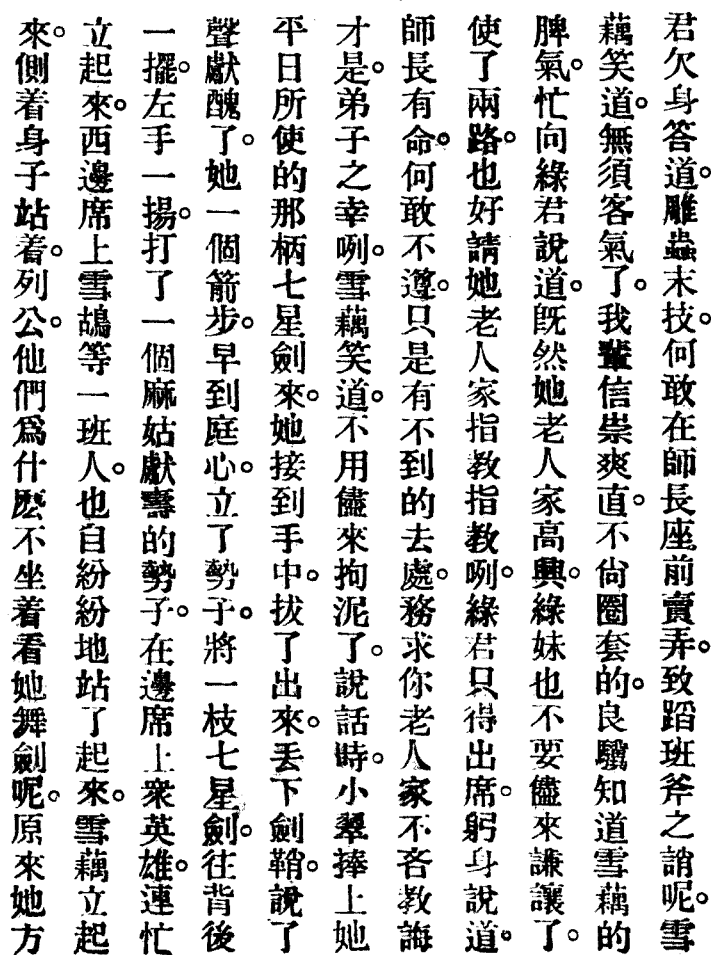 君欠身答道。雕蟲末技。何敢在師長座前賣弄。致蹈班斧之誚呢。雪
藕笑道。無須客氣了。我輩信崇爽直。不尙圈套的。良驥知道雪藕的
脾氣。忙向綠君說道。旣然她老人家高興。綠妹也不要儘來謙讓了。
使了兩路。也好請她老人家指敎指敎咧。綠君只得出席。躬身說道。
師長有命。何敢不遵。只是有不到的去處。務求你老人家不吝敎誨
才是。弟子之幸咧。雪藕笑道。不用儘來拘泥了。說話時。小翠捧上她
平日所使的那柄七星劍來。她接到手中。拔了出來。丟下劍鞘。說了
聲獻醜了。她一個箭步。早到庭心。立了勢子。將一枝七星劍。往背後
一擺。左手一揚。打了一個麻姑獻壽的勢子。在邊席上衆英雄。連忙
立起來。西邊席上雪鴣等一班人。也自紛紛地站了起來。雪藕立起
來。側着身子站着。列公。他們爲什麽不坐着看她舞劍呢。原來她方